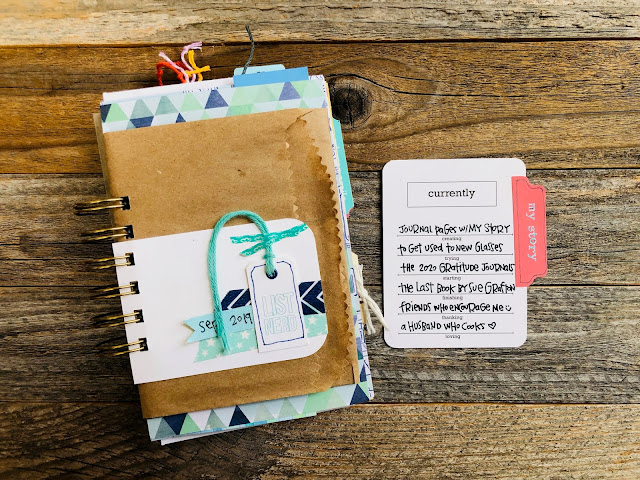 Sep 2019
LIST
currently
my story
JOURNAL PAGES W/MY STORY
creating
to Get used to New GLASSES
trying
the 2020 GRATITUDE JOURNALS
starting
the LAST BOOK BY SUE GRAFTON
finishing
FRIENDS WHO ENCOURAGE ME
thanking
a HUSBAND WHO COOKS
loving